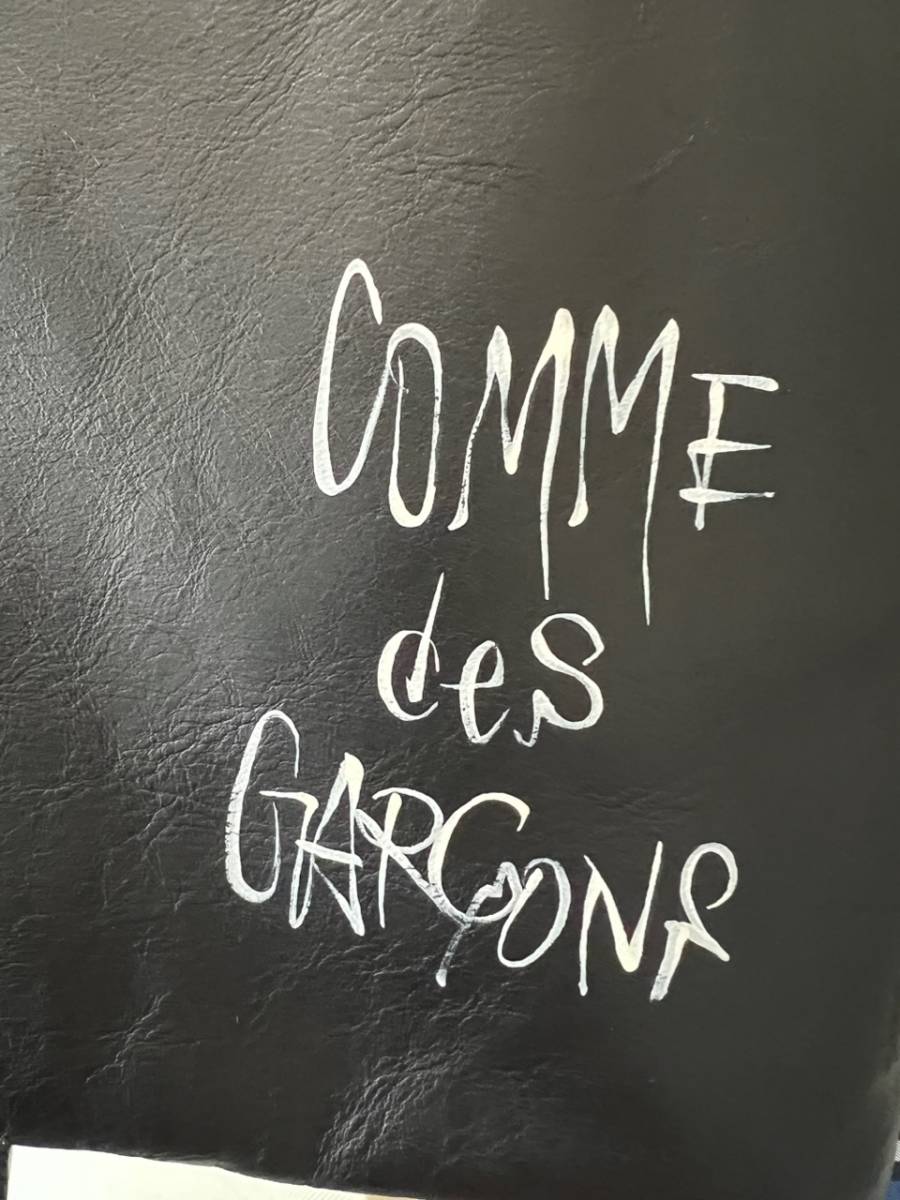 COMME
des
GARÇONS